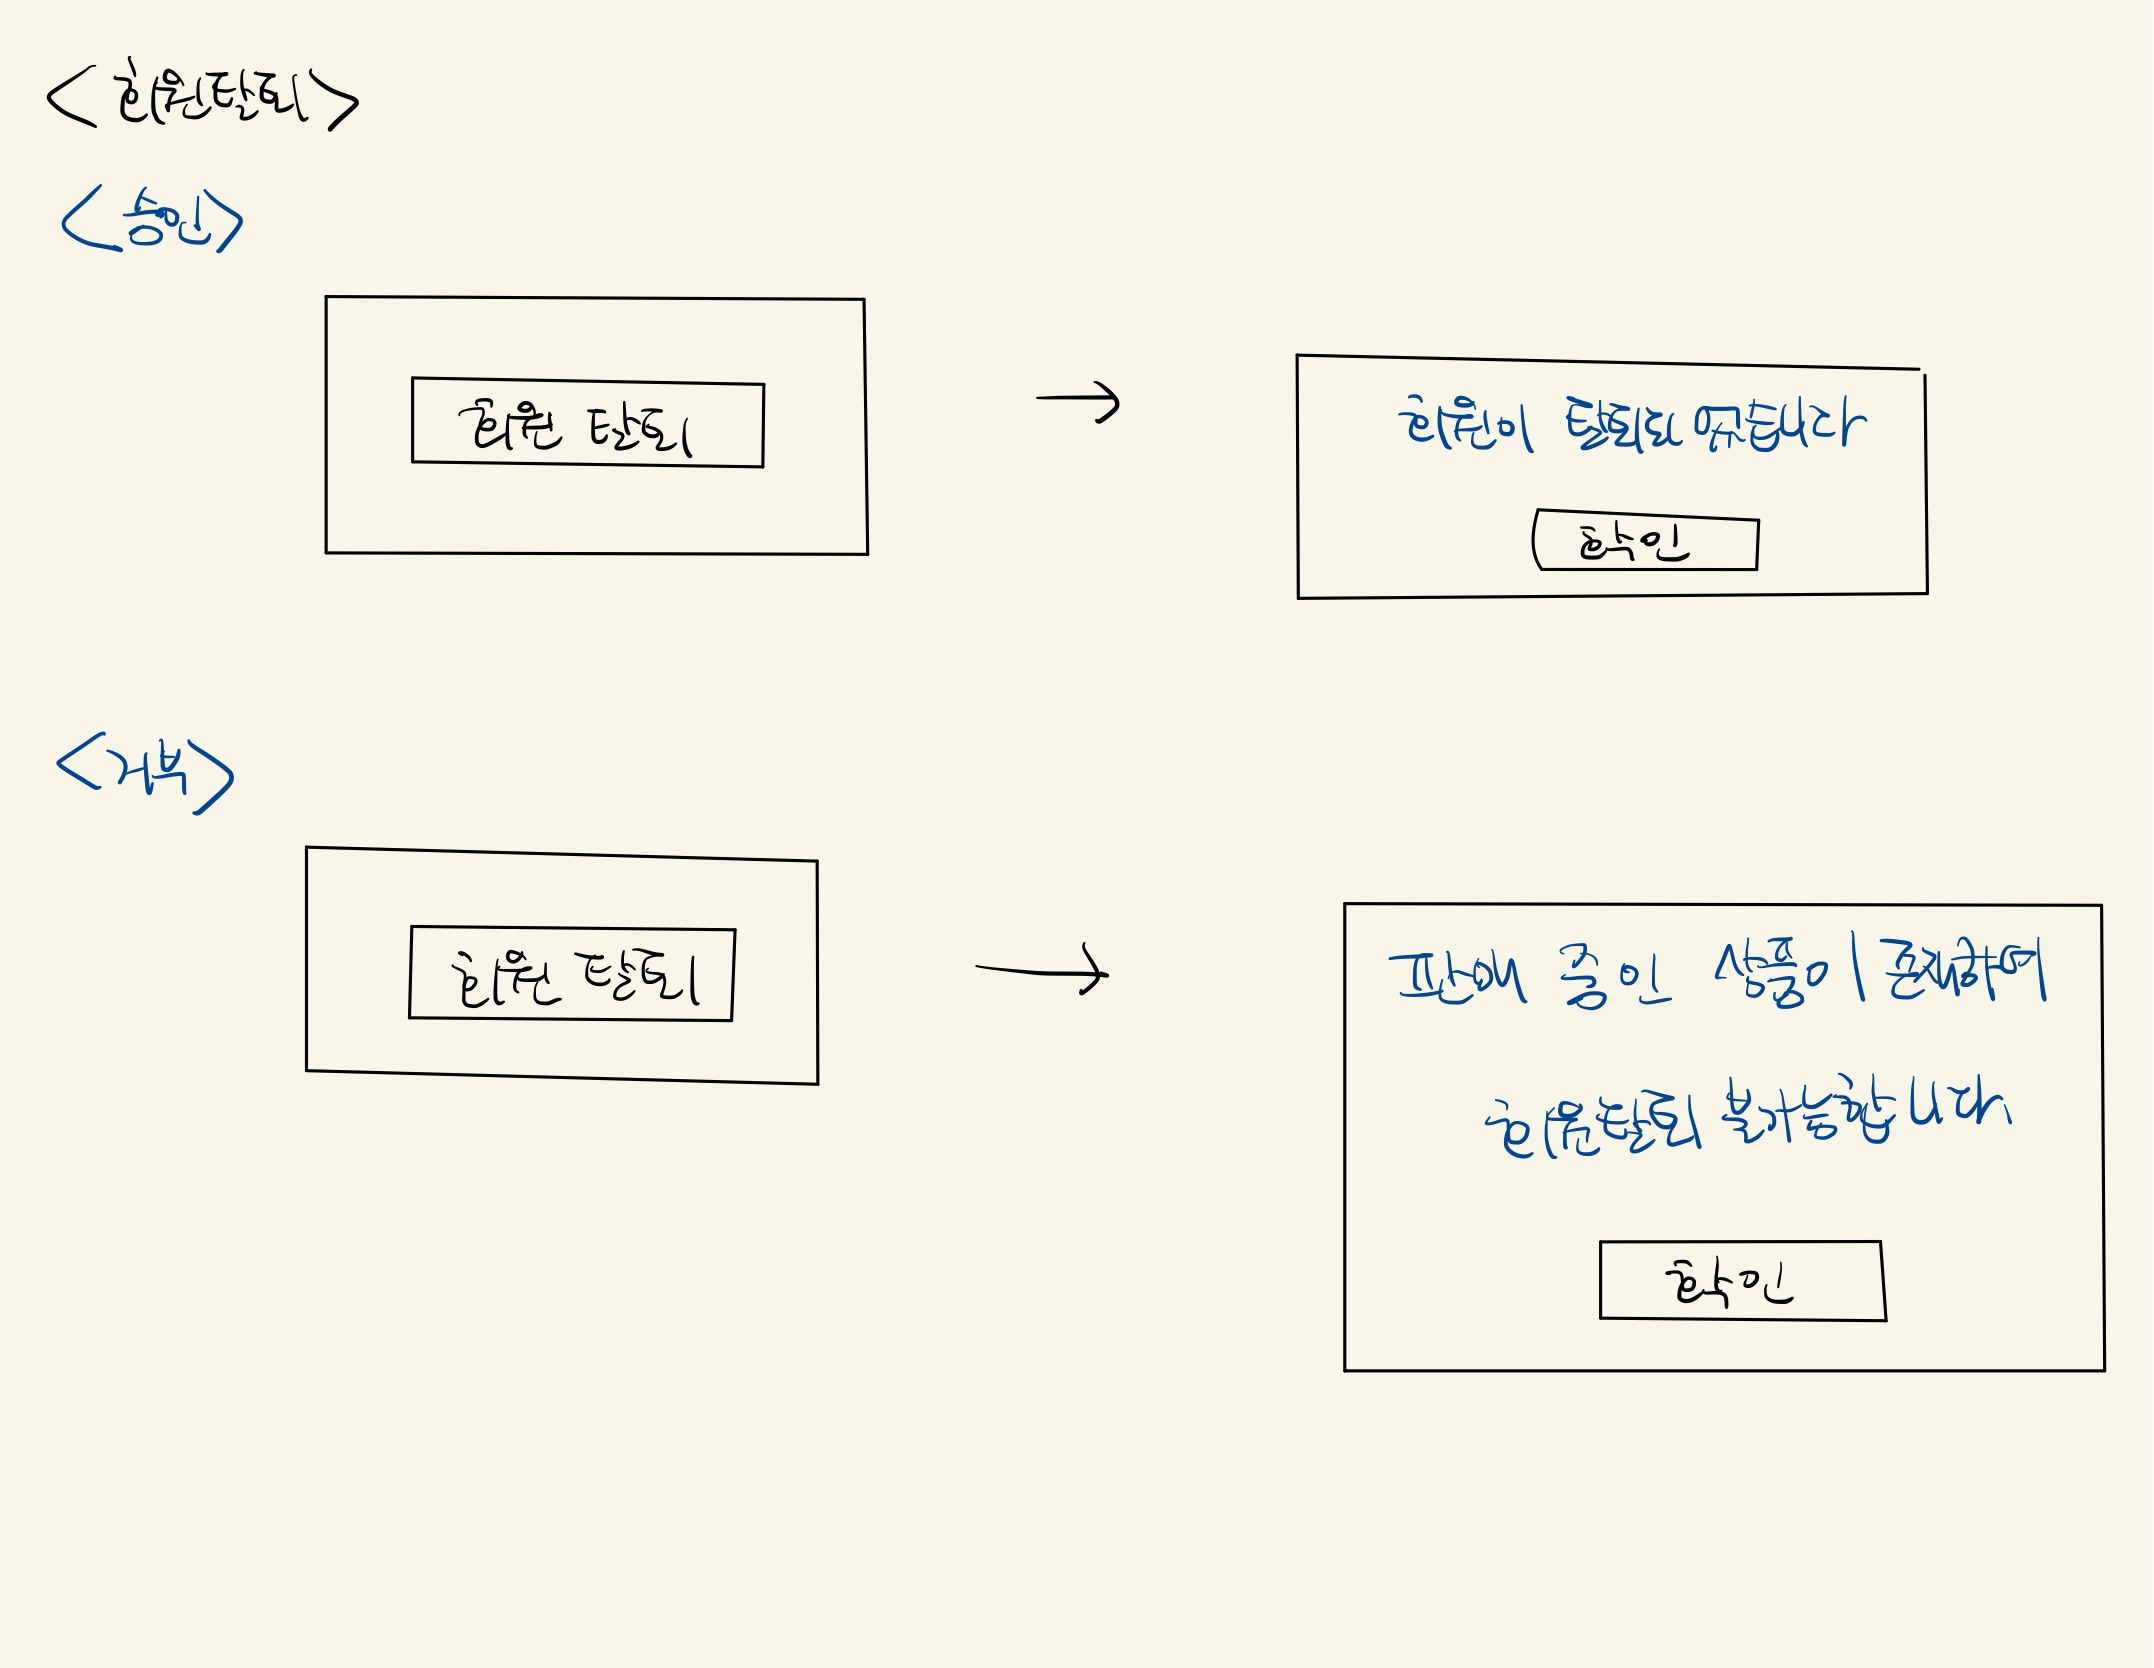 <회원탈퇴>
<승인>
회원 탈퇴
회원이 탈퇴되었습니다
확인
<거부>
회원 탈퇴
판매 중인 상품이 존재하여
회원탈퇴 불가능합니다.
확인